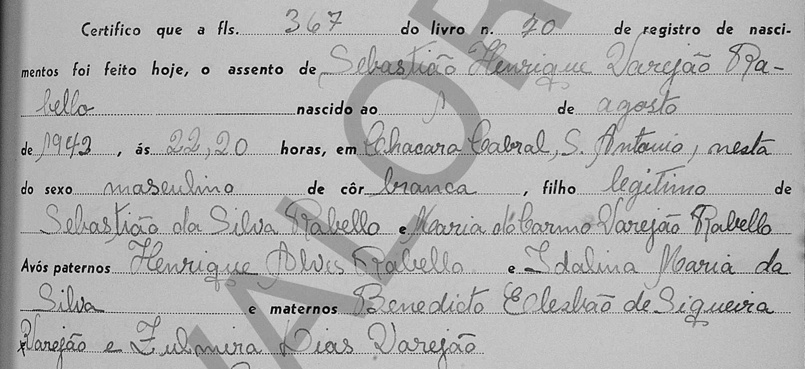 Certifico que a fls. 367 do livro n. 20 de registro de nasci-
mentos foi feito hoje, o assento de Sebastião Henrique Varejão Ra-
bello nascido ao 1 de agosto
de 1943, ás 22,20 horas, em Chacara Cabral, S. Antonio, nesta
do sexo masculino de côr branca, filho legitimo de
Sebastião da Silva Rabello e Maria do Carmo Varejão Rabello
Avós paternos Henrique Alves Rabello e Idalina Maria da
Silva e maternos Benedicto Elesbão de Siqueira
Varejão e Zulmira Dias Varejão
VALOR